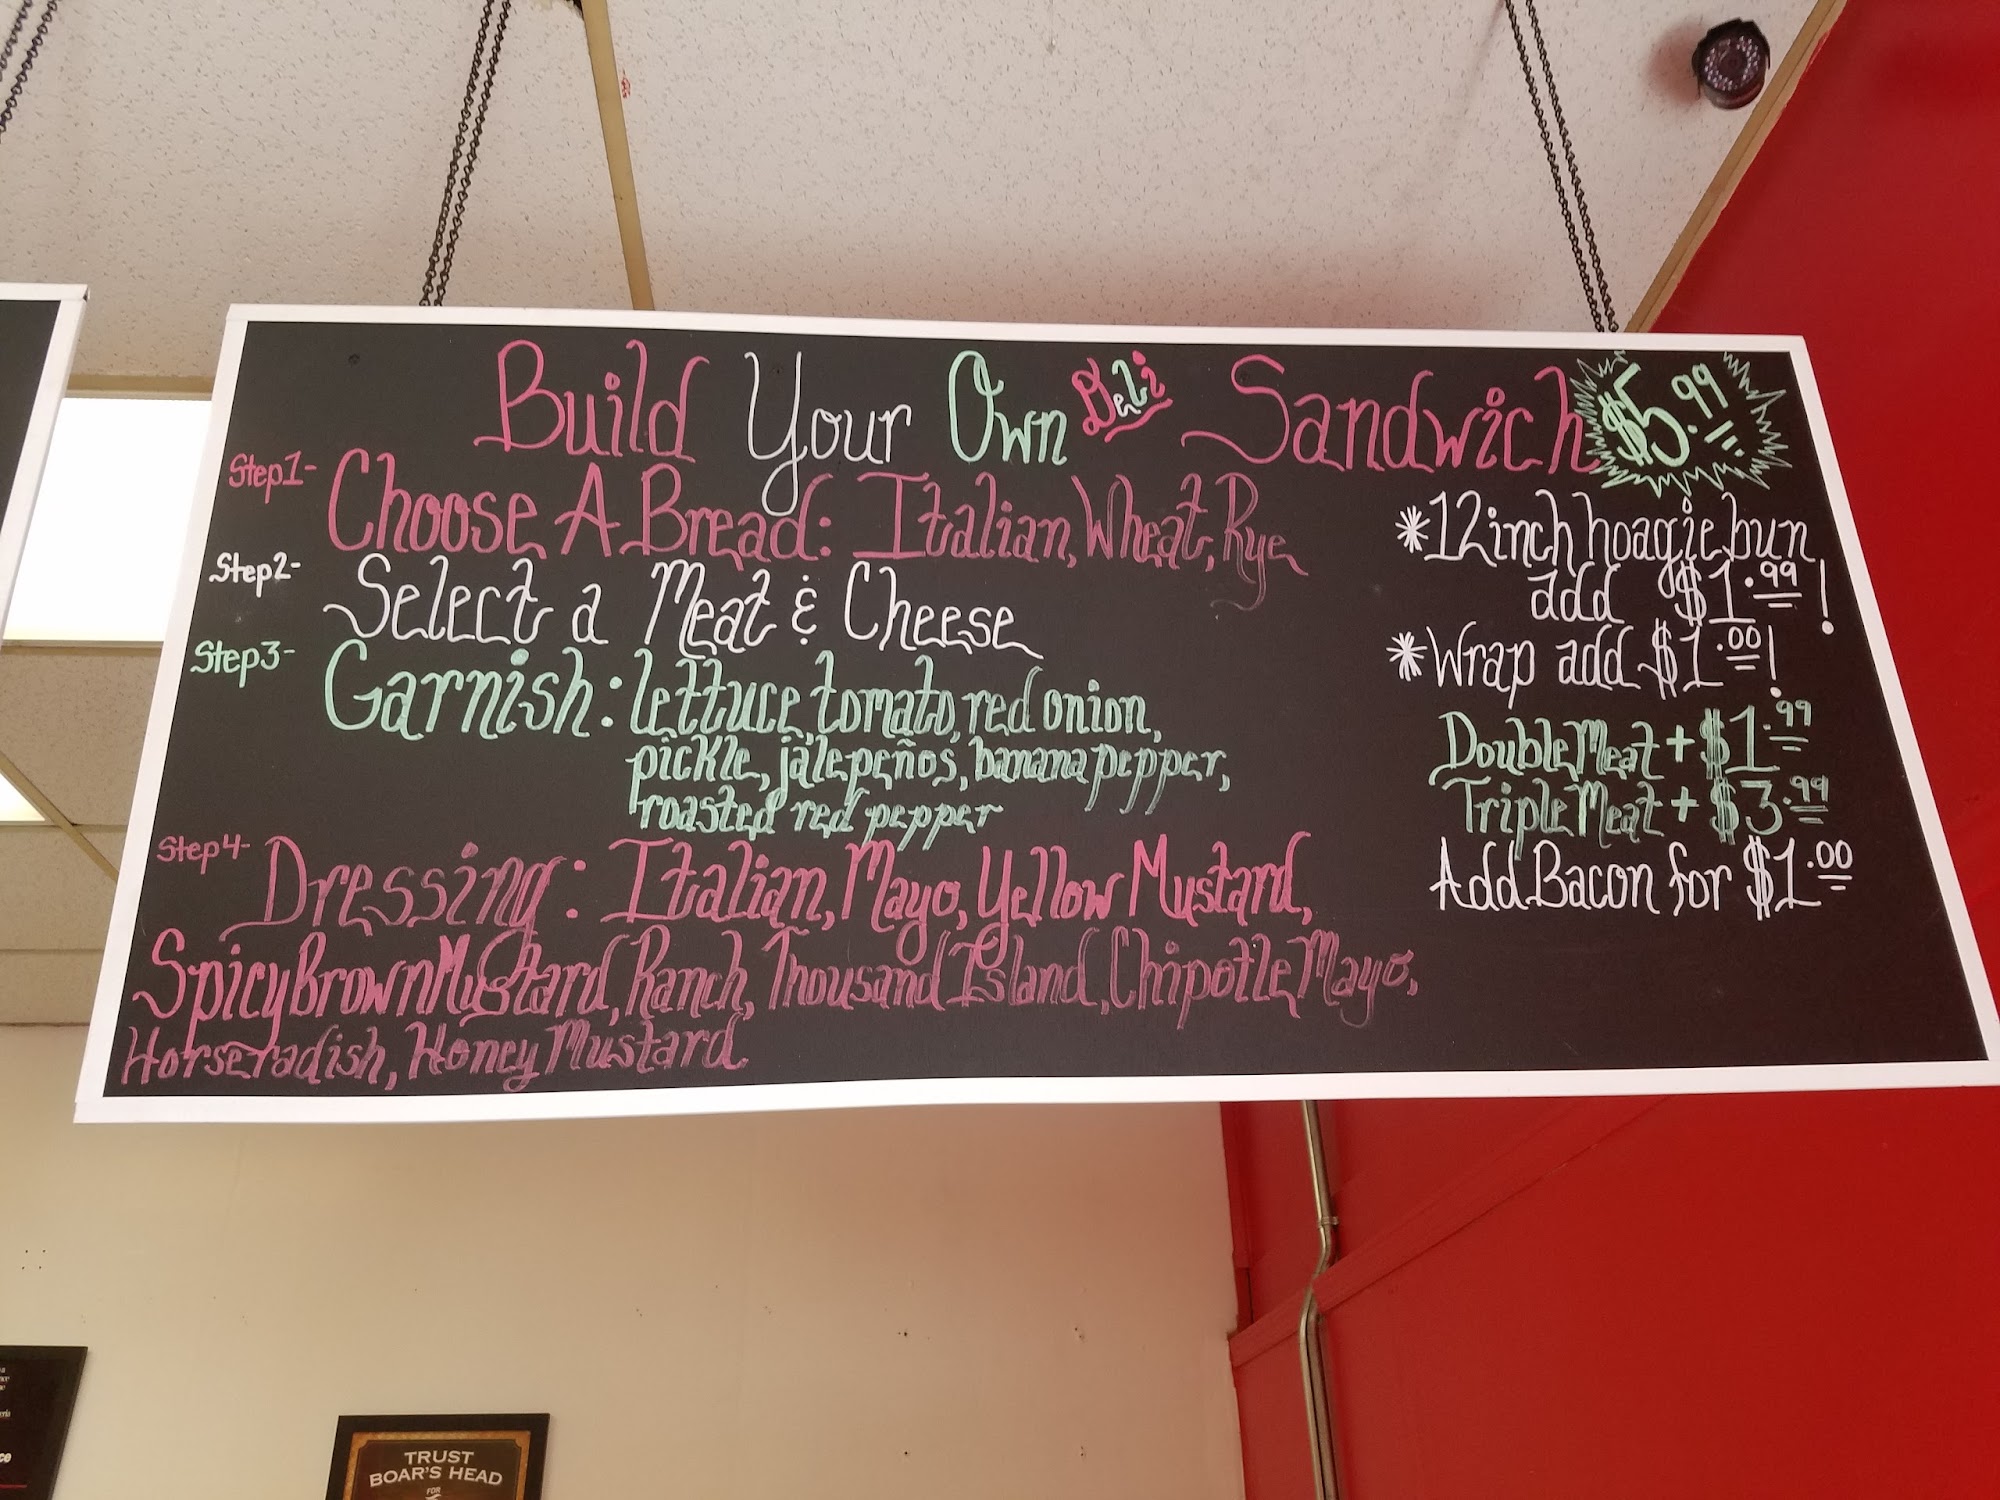 Build Your Own Deli Sandwich $5.99
Step1- Choose A Bread: Italian, Wheat, Rye
Step2- Select a Meat & Cheese
Step3- Garnish: lettuce, tomato, red onion,
pickle, jalepeños, banana pepper,
roasted red pepper
Step4- Dressing: Italian, Mayo, Yellow Mustard,
Spicy Brown Mustard, Ranch, Thousand Island, Chipotle Mayo,
Horseradish, Honey Mustard
*12 inch hoagie bun
add $1.99!
*Wrap add $1.00!
Double Meat + $1.99
Triple Meat + $3.99
Add Bacon for $1.00
TRUST
BOAR'S HEAD
FOR